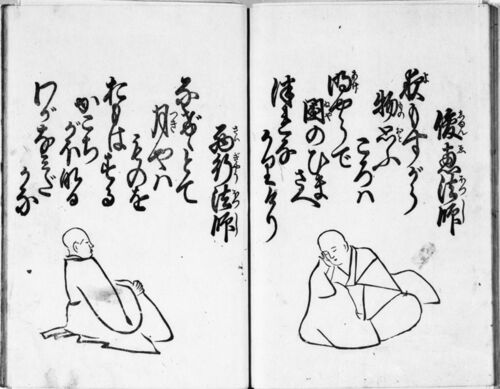 俊恵法師
夜もすがら
物思ふ
ころハ
明やらで
閨のひま
さへ
つれな
かりけり
西行法師
なげけとて
月やハ
ものを
おもはする
かこち
がほなる
わがなミだ
かな